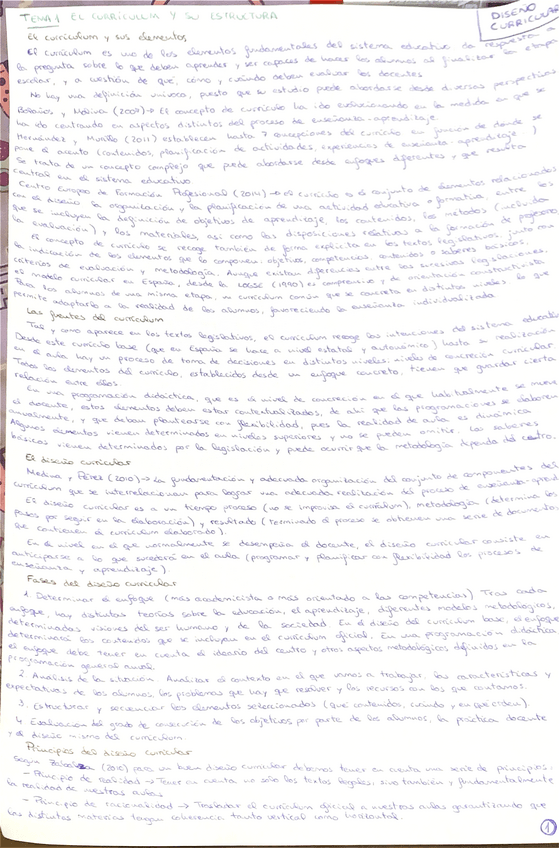 TEMA 1 EL CURRÍCULUM Y SU ESTRUCTURA
DISEÑO
CURRICULAR
El currículum y sus elementos
El currículum es uno de los elementos fundamentales del sistema educativo da respuesta a
la pregunta sobre lo que deben aprender y ser capaces de hacer los alumnos al finalizar la etapa
escolar, y a cuestión de qué, cómo y cuándo deben evaluar los docentes
No hay una definición unívoca, puesto que su estudio puede abordarse desde diversas perspectivas
Bolaños y Molina (2007) → El concepto de currículo ha ido evolucionando en la medida en que se
ha ido centrando en aspectos distintos del proceso de enseñanza-aprendizaje.
Hernández y Murillo (2011) establecen hasta 7 concepciones del currículo en función de donde se
pone el acento (contenidos, planificación de actividades, experiencias de enseñanza-aprendizaje)
Se trata de un concepto complejo que puede abordarse desde enfoques diferentes y que resulta
central en el sistema educativo
Centro Europeo de Formación Profesional (2014) → el currículo es el conjunto de elementos relacionados
con el diseño la organización y la planificación de una actividad educativa o formativa, entre los
que se incluyen la definición de objetivos de aprendizaje, los contenidos, los métodos (incluida
la evaluación) y los materiales, así como las disposiciones relativas a la formación de profesores
El concepto de currículo se recoge también de forma explícita en los textos legislativos, junto con
la indicación de los elementos que lo componen: objetivos, competencias, contenidos o saberes básicos,
criterios de evaluación y metodología. Aunque existan diferencias entre las sucesivas legislaciones,
el modelo curricular en España, desde la LOGSE (1990) es comprensivo y de orientación constructivista
Para los alumnos de una misma etapa, un currículum común que se concreta en distintos niveles, lo que
permite adaptarlo a la realidad de los alumnos, favoreciendo la enseñanza individualizada
Las fuentes del currículum
Tal y como aparece en los textos legislativos, el currículum recoge las intenciones del sistema educativo
Desde este currículo base (que en España se hace a nivel estatal y autonómico) hasta su realización
en el aula hay un proceso de toma de decisiones en distintos niveles: niveles de concreción curricular.
Todos los elementos del currículo, establecidos desde un enfoque concreto, tienen que guardar cierta
relación entre ellos.
En una programación didáctica, que es el nivel de concreción en el que habitualmente se mueve
el docente, estos elementos deben estar contextualizados, de ahí que las programaciones se elaboren
anualmente, y que deban plantearse con flexibilidad, pues la realidad de aula es dinámica
Algunos elementos vienen determinados en niveles superiores y no se pueden omitir. Los saberes
básicos vienen determinados por la legislación y puede ocurrir que la metodología dependa del centro.
El diseño curricular
Medina y Pérez (2010) → La fundamentación y adecuada organización del conjunto de componentes del
currículum que se interrelacionan para lograr una adecuada realización del proceso de enseñanza-aprend
El diseño curricular es a un tiempo proceso (no se improvisa el currículum), metodología (determina los
pasos por seguir en la elaboración) y resultado (terminado el proceso se obtienen una serie de documentos
que contienen el currículum elaborado).
En el nivel en el que normalmente se desempeña el docente, el diseño curricular consiste en
anticiparse a lo que sucederá en el aula (programar y planificar con flexibilidad los procesos de
enseñanza y aprendizaje).
Fases del diseño curricular
1. Determinar el enfoque (más academicista o más orientado a las competencias) Tras cada
enfoque, hay distintas teorías sobre la educación, el aprendizaje, diferentes modelos metodológicos,
determinadas visiones del ser humano y de la sociedad. En el diseño del currículum base, el enfoque
determinará los contenidos que se incluyan en el currículum oficial. En una programación didáctica
el enfoque debe tener en cuenta el ideario del centro y otros aspectos metodológicos definidos en la
programación general anual.
2. Análisis de la situación. Analizar el contexto en el que vamos a trabajar, las características y
expectativas de los alumnos los problemas que hay que resolver y los recursos con los que contamos.
3. Estructurar y secuenciar los elementos seleccionados (qué contenidos, cuándo y en qué orden).
4. Evaluación del grado de consecución de los objetivos por parte de los alumnos, la práctica docente
y el diseño mismo del currículum.
Principios del diseño curricular
Según (2010) para un buen diseño curricular debemos tener en cuenta una serie de principios:
- Principio de realidad → Tener en cuenta no sólo los textos legales, sino también y fundamentalmente
la realidad de nuestras aulas
- Principio de racionalidad → Trasladar el currículum oficial a nuestras aulas garantizando que
las distintas materias tengan coherencia tanto vertical como horizontal.
1